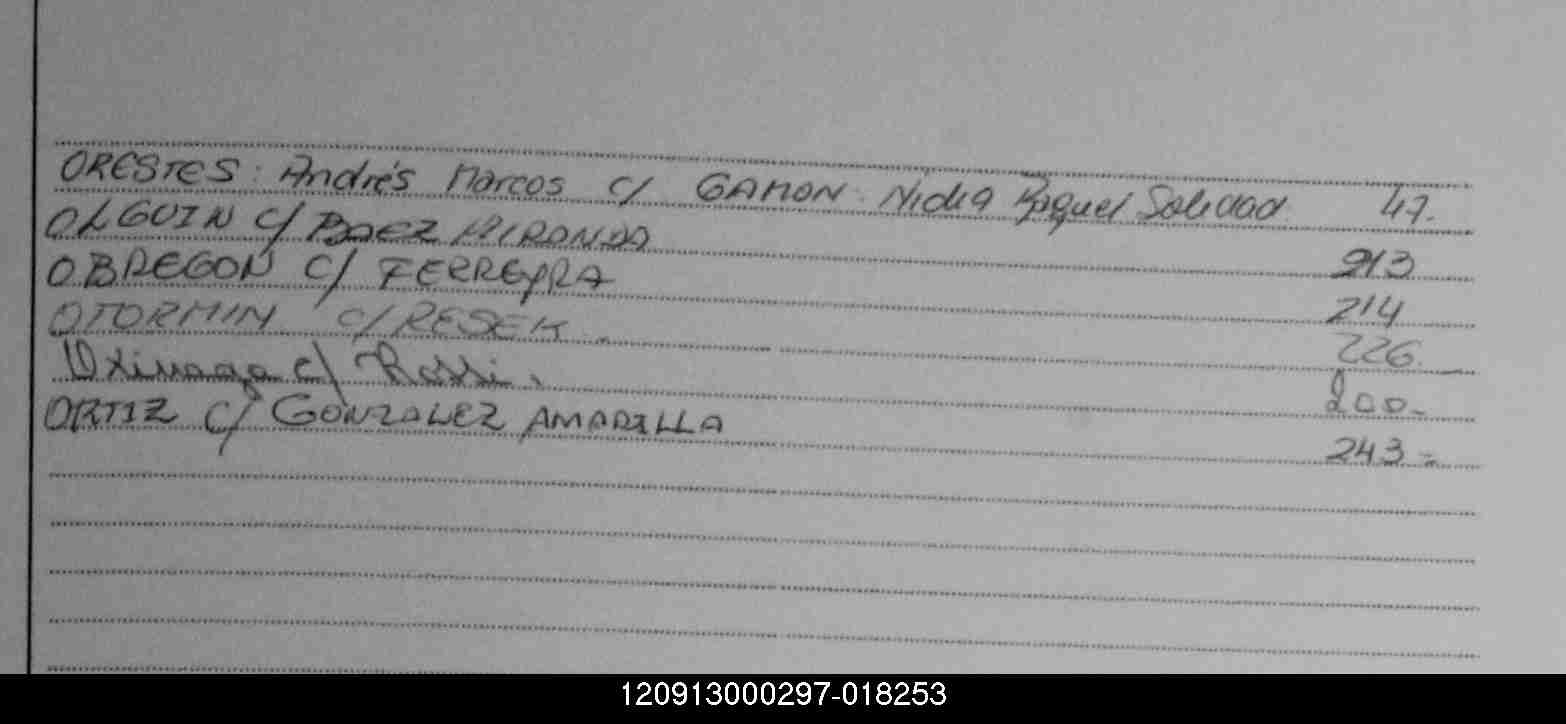 ORESTES: Andrés Marcos c/ GAMON: Nidia Raquel Soledad 47.
OLGUIN c/ BAEZ MIRANDA 213
OBREGON c/ FERREYRA 214
OTORMIN c/ RESEK. 226.
c/ Rossi. 200-
ORTIZ c/ GONZALEZ AMARILLA 243-
120913000297-018253